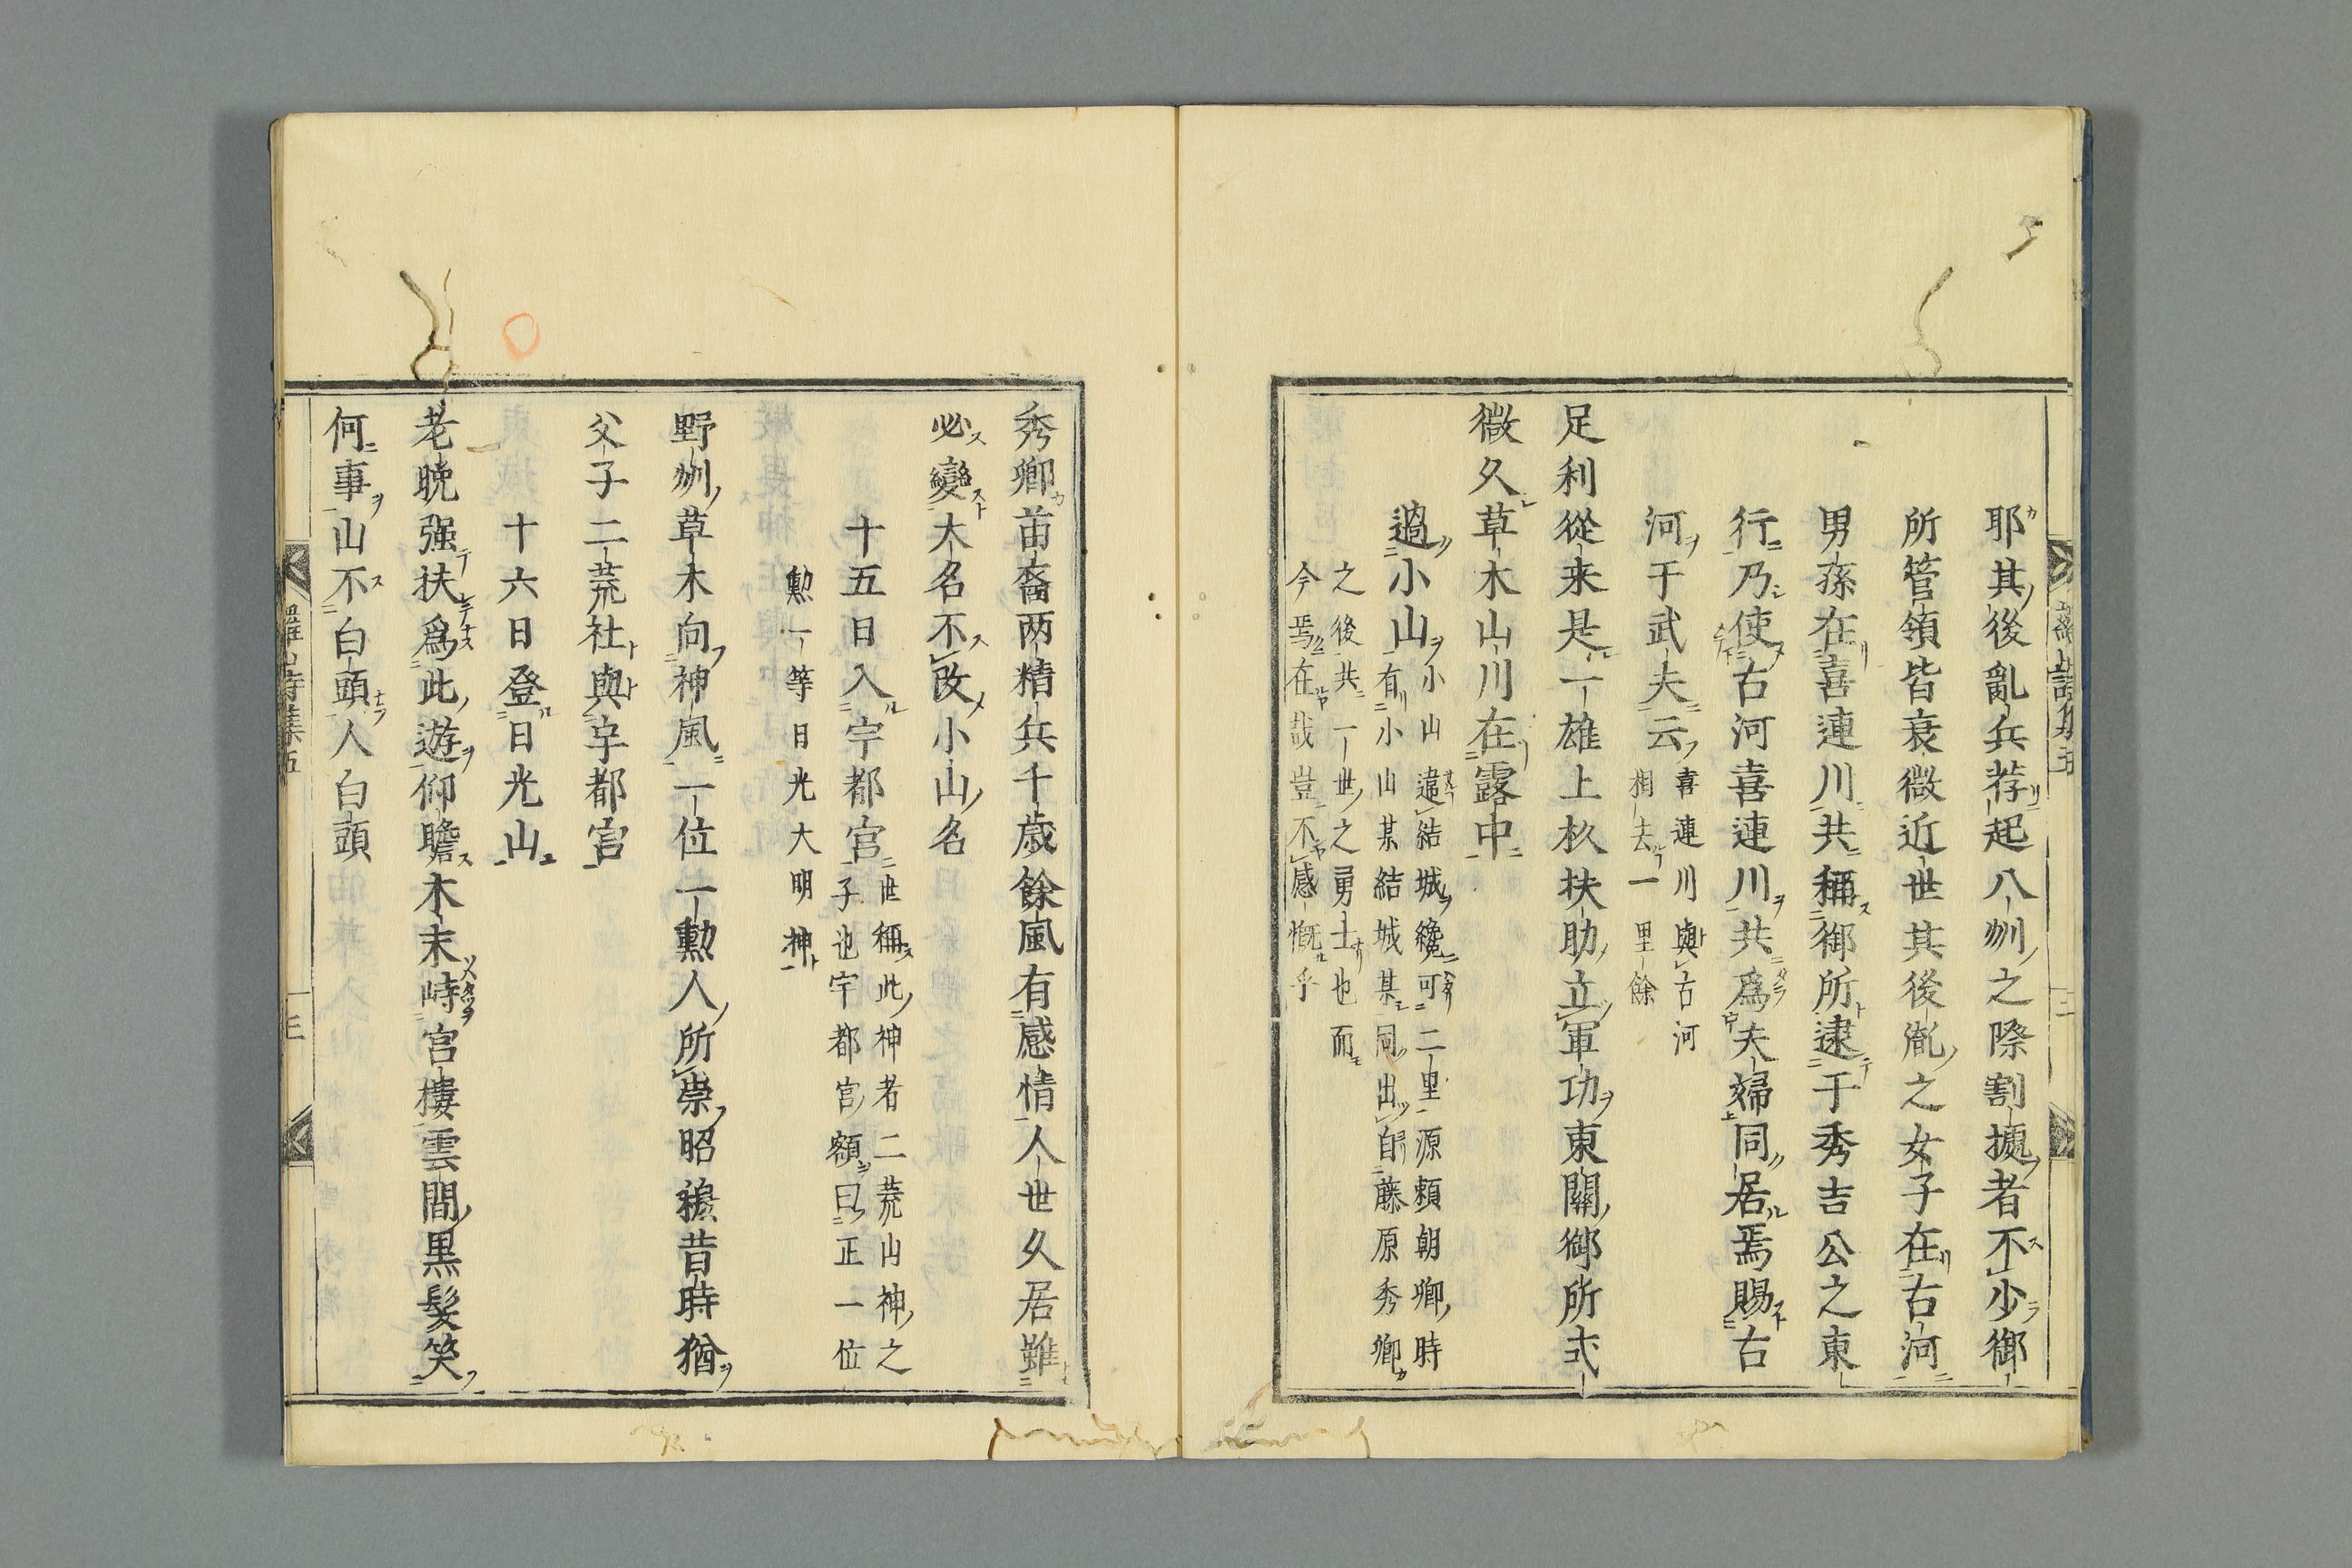 耶其後亂兵荐起八州之際割據者不少御
所管領皆衰微近世其後胤之女子在古河
男孫在喜連川共稱御所逮于秀吉公之東
行乃使古河喜連川共爲夫婦同居焉賜古
河于武夫云
喜連川與古河
相去一里餘
足利從来是一雄上杦扶助立軍功東關御所式
微久草木山川在露中
過小山
小山違結城纔可二里源頼朝卿時
有小山某結城某同出自藤原秀卿
之後共一世之勇士也而
今焉在哉豈不感慨乎
秀卿苗裔两精兵千歳餘風有感情人世久居雖
必變大名不改小山名
十五日入宇都宮
世稱此神者二荒山神之
子也宇都宮額曰正一位
勲一等日光大明神
野州草木向神風一位一勲人所崇昭穆昔時猶
父子二荒社與宇都宮
十六日登日光山
老晩强扶爲此遊仰瞻木末峙宮樓雲間黒髪笑
何事山不白頭人白頭
羅山詩集五
三